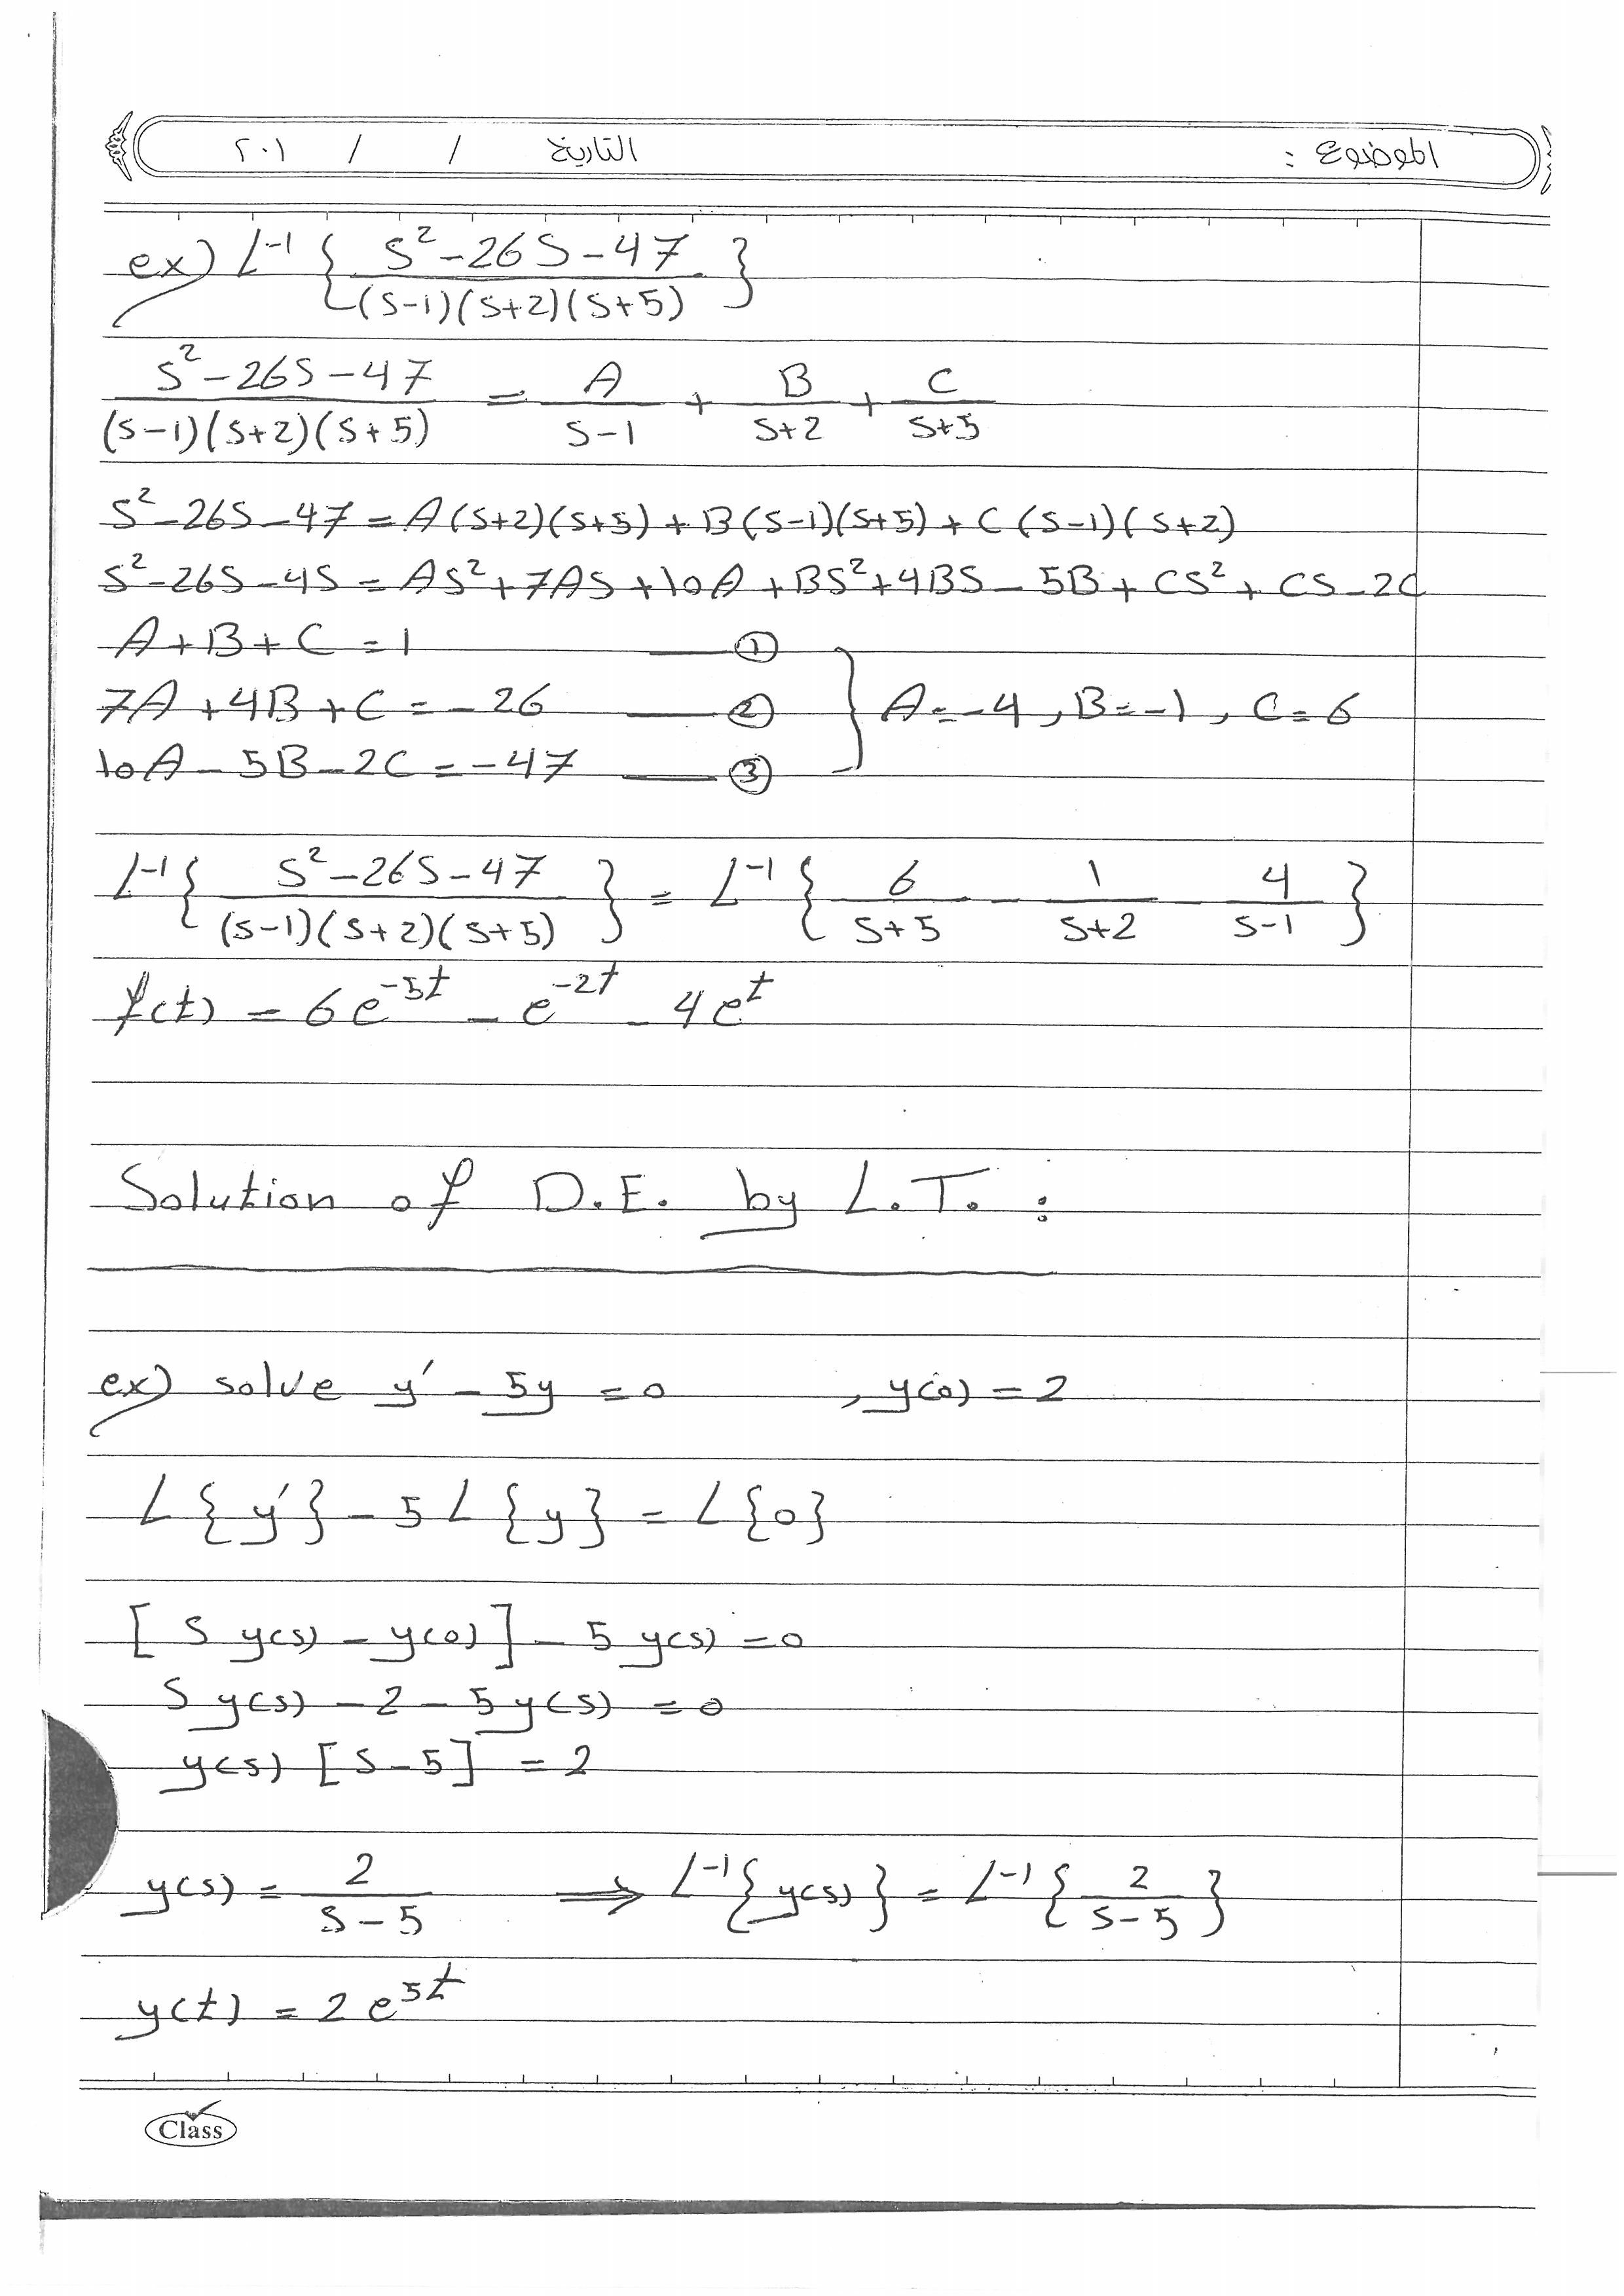 الموضوع : التاريخ / / ٢٠١
ex) L⁻¹ { (S² - 26S - 47) / ((S-1)(S+2)(S+5)) }
(S² - 26S - 47) / ((S-1)(S+2)(S+5)) = A/(S-1) + B/(S+2) + C/(S+5)
S² - 26S - 47 = A(S+2)(S+5) + B(S-1)(S+5) + C(S-1)(S+2)
S² - 26S - 4S = AS² + 7AS + 10A + BS² + 4BS - 5B + CS² + CS - 2C
A + B + C = 1 —— ①
7A + 4B + C = -26 —— ② } A = -4 , B = -1 , C = 6
10A - 5B - 2C = -47 —— ③
L⁻¹ { (S² - 26S - 47) / ((S-1)(S+2)(S+5)) } = L⁻¹ { 6/(S+5) - 1/(S+2) - 4/(S-1) }
f(t) = 6e⁻⁵ᵗ - e⁻²ᵗ - 4eᵗ
Solution of D.E. by L.T. :
ex) solve y′ - 5y = 0 , y(0) = 2
L{y′} - 5L{y} = L{0}
[S y(s) - y(0)] - 5 y(s) = 0
S y(s) - 2 - 5y(s) = 0
y(s) [S - 5] = 2
y(s) = 2/(S-5) ⟹ L⁻¹{y(s)} = L⁻¹{2/(S-5)}
y(t) = 2e⁵ᵗ
Class